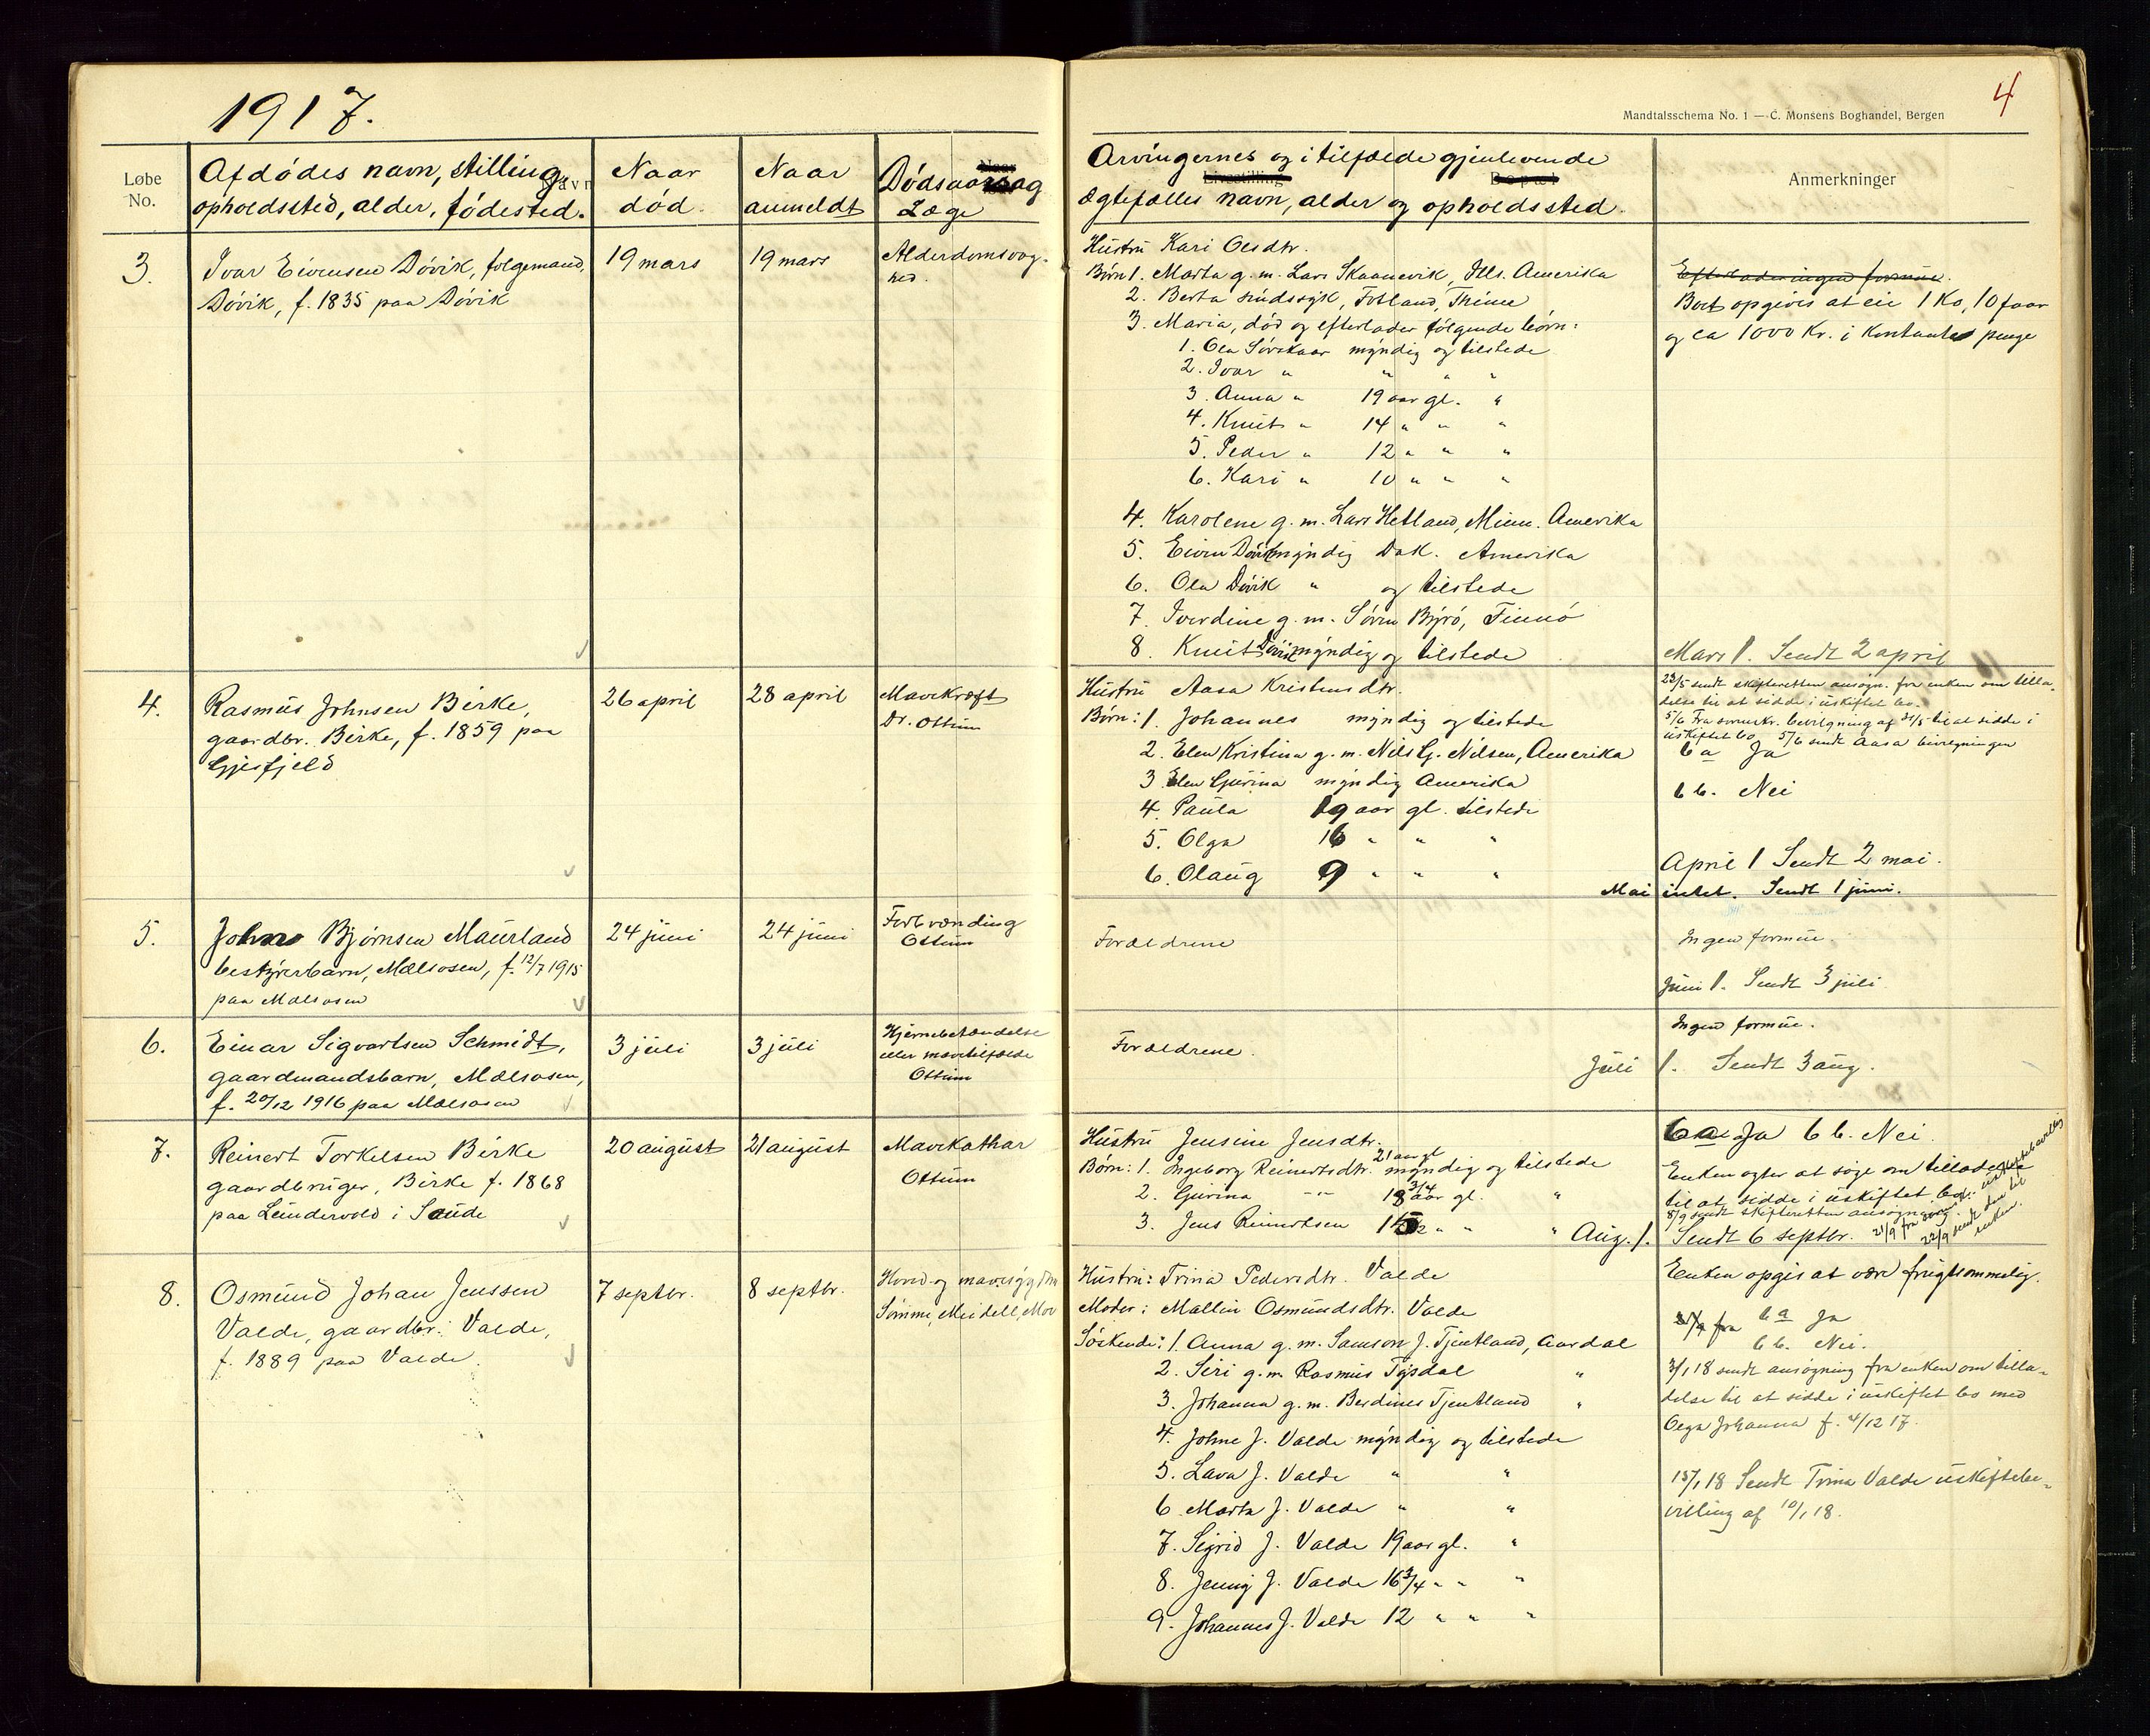 1917.
4
Mandtalsschema No. 1 — C. Monsens Boghandel, Bergen
Løbe No.
Afdødes navn, stilling,
opholdssted, alder, fødested.
Naar død.
Naar anmeldt
Dødsaarsag
Læge
Arvingernes og i tilfælde gjenlevende
ægtefælles navn, alder og opholdssted.
Anmerkninger
3.
Ivar Eivensen Døvik, folgemand,
Døvik, f. 1835 paa Døvik
19 mars
19 mars
Alderdomsvag-
hed.
Hustru Kari Olsdtr.
Børn 1. Marta g. m. Lars Skaanevik, Ills. Amerika
2. Berta sindssyk, Fotland, Thime
3. Maria, død og efterlader følgende børn:
1. Ola Sørskaar myndig og tilstede
2. Ivar " " " "
3. Anna " 19 aar gl. "
4. Knut " 14 " " "
5. Peder " 12 " " "
6. Kari " 10 " " "
4. Karolene g. m. Lars Hetland, Minn. Amerika
5. Eivin Døvik myndig Dak. Amerika
6. Ola Døvik " og tilstede
7. Iverdine g. m. Søren Byrø, Finnø
8. Knut Døvik myndig og tilstede
Boet opgives at eie 1 Ko, 10 faar
og ca 1000 Kr. i kontante penge
Mars 1. Sendt 2 april
4.
Rasmus Johnsen Birke,
gaardbr. Birke, f. 1859 paa
Gjesfjeld
26 april
28 april
Mavekræft
Dr. Ottum
Hustru Aasa Kristensdtr.
Børn: 1. Johannes myndig og tilstede
2. Elen Kristina g. m. Nils G. Nilsen, Amerika
3 Elen Gurina myndig Amerika
4. Paula 19 aar gl. tilstede
5. Olga 16 " " "
6. Olaug 9 " " "
23/5 sendt skifteretten ansøgn. fra enken om tilla-
delse til at sidde i uskiftet bo.
5/6 Fra sorenskr. bevilgning af 31/5 til at sidde i
uskiftet bo 5/6 sendt Aasa bevilgningen
6 a Ja
6 b. Nei
April 1 Sendt 2 mai.
Mai intet. Sendt 1 juni.
5.
John Bjørnsen Maurland
bestyrerbarn, Mælsosen, f. 12/7 1915
paa Mælsosen
24 juni
24 juni
Forbrænding
Ottum
Forældrene
Ingen formue.
Juni 1. Sendt 3 juli
6.
Einar Sigvartsen Schmidt,
gaardmandsbarn, Mælsosen,
f. 20/12 1916 paa Mælsosen
3 juli
3 juli
Hjernebetændelse
eller mavetilfælde
Ottum
Forældrene.
Ingen formue.
Juli 1. Sendt 3 aug.
7.
Reinert Torkelsen Birke
gaardbruger, Birke f. 1868
paa Lundevold i Saude
20 august
21 august
Mavekathar
Ottum
Hustru Jensine Jensdtr.
21 aar gl
Børn: 1. Ingeborg Reinertsdtr. myndig og tilstede
2. Gurina -"- 18 3/4 aar gl. "
3. Jens Reinertsen
6 a Ja 6 b. Nei.
Enken agter at søge om tilladelse
til at sidde i uskiftet bo.
8/9 sendt skifteretten ansøgning.
Aug. 1. Sendt 6 septbr.
8.
Osmund Johan Jenssen
Valde, gaardbr. Valde,
f. 1889 paa Valde.
7 septbr.
8 septbr.
Hoved og mavesygdom
Sømme, Meidell, Moe
Hustru: Trina Pedersdtr. Valde
Moder: Mallin Osmundsdtr. Valde
Søskende: 1. Anna g. m. Samson J. Tjentland, Aardal
2. Siri g. m. Rasmus Tysdal "
3. Johanna g. m. Berdines Tjentland "
4. Johne J. Valde myndig og tilstede
5. Lava J. Valde " "
6 Marta J. Valde " "
7. Sigrid J. Valde 19 aar gl. "
8. Jenny J. Valde 16 3/4 " " "
9. Johannes J. Valde 12 " " "
Enken opgis at være frugtsommelig.
6 a Ja
6 b. Nei.
3/1 18 sendt ansøgning fra enken om tilla-
delse til at sidde i uskiftet bo med
Olga Johanna f. 4/12 17.
15/1 18 Sendt Trina Valde uskiftebe-
villing af 10/1 18.